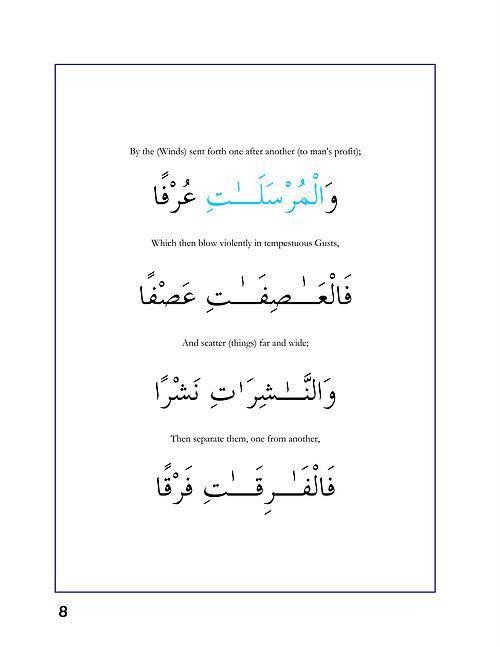 By the (Winds) sent forth one after another (to man's profit);
وَالْمُرْسَلَـٰتِ عُرْفًا
Which then blow violently in tempestuous Gusts,
فَالْعَـٰصِفَـٰتِ عَصْفًا
And scatter (things) far and wide;
وَالنَّـٰشِرَاتِ نَشْرًا
Then separate them, one from another,
فَالْفَـٰرِقَـٰتِ فَرْقًا
8